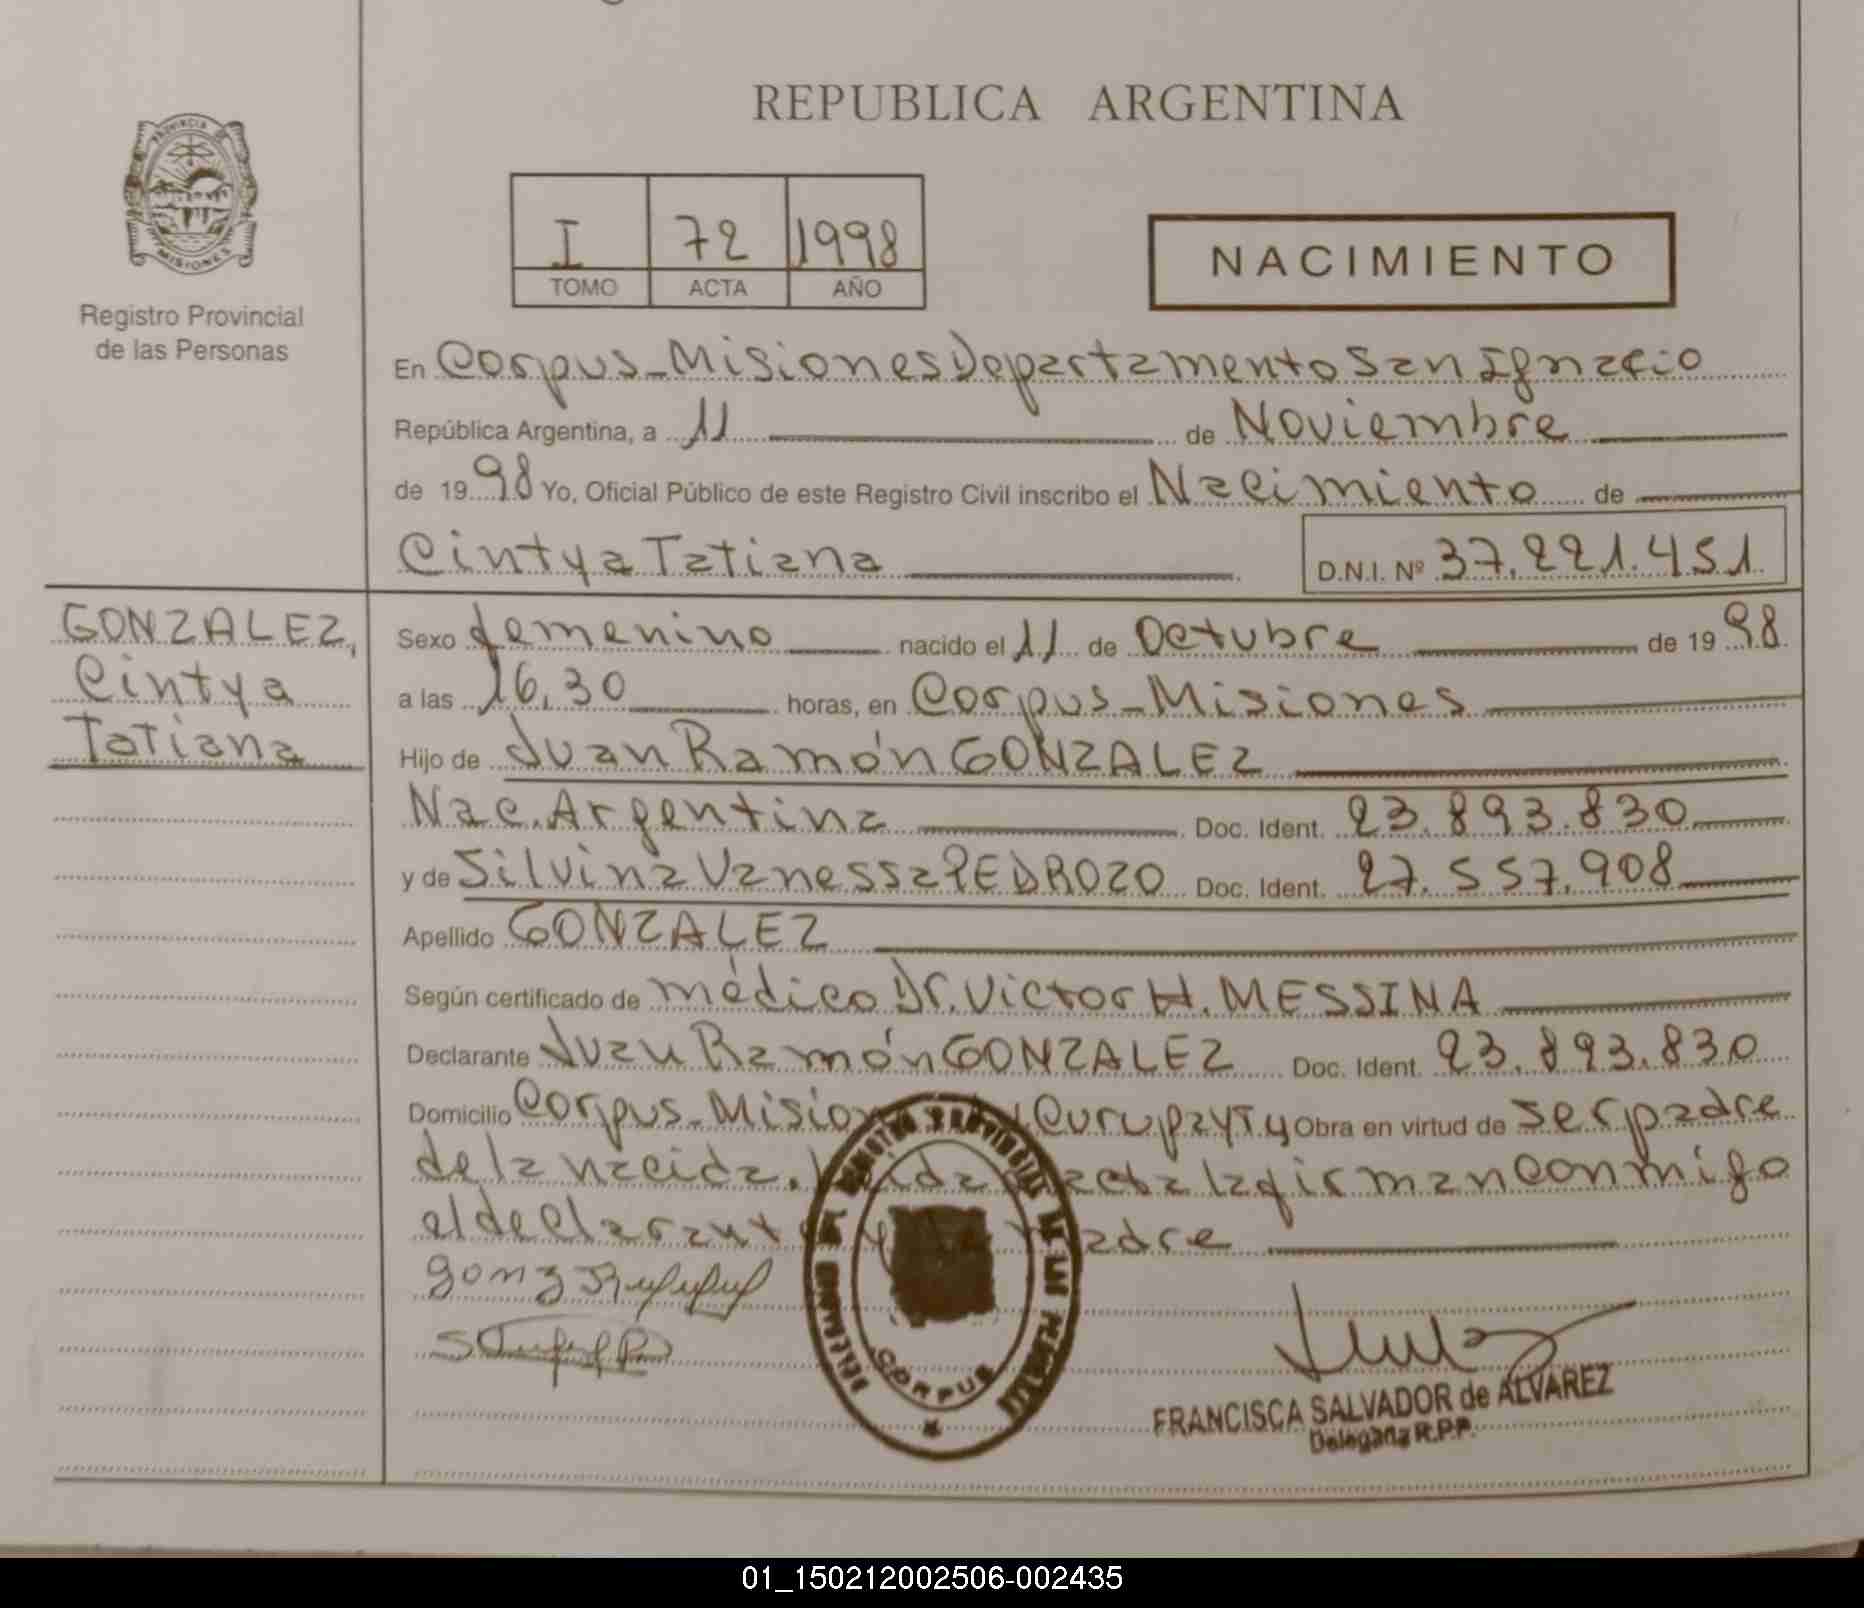 REPUBLICA ARGENTINA
PROVINCIA DE
MISIONES
Registro Provincial
de las Personas
I 72 1998
TOMO ACTA AÑO
NACIMIENTO
En Corpus-Misiones Departamento San Ignacio
República Argentina, a 11 de Noviembre
de 1998 Yo, Oficial Público de este Registro Civil inscribo el Nacimiento de
Cintya Tatiana D.N.I. Nº 37.221.451
GONZALEZ,
Cintya
Tatiana
Sexo femenino nacido el 11 de Octubre de 1998
a las 16,30 horas, en Corpus-Misiones
Hijo de Juan Ramón GONZALEZ
Nac. Argentina Doc. Ident. 23.893.830
y de Silvina Vanessa PEDROZO Doc. Ident. 27.557.908
Apellido GONZALEZ
Según certificado de médico Dr. Victor H. MESSINA
Declarante Juan Ramón GONZALEZ Doc. Ident. 23.893.830
Domicilio Corpus-Mision Curupayty Obra en virtud de ser padre
de la nacida. acta la firman conmigo
el declarant y adre
REGISTRO PROVINCIAL DE LAS PERSONAS
CORPUS
FRANCISCA SALVADOR de ALVAREZ
Delegada R.P.P.
01_150212002506-002435